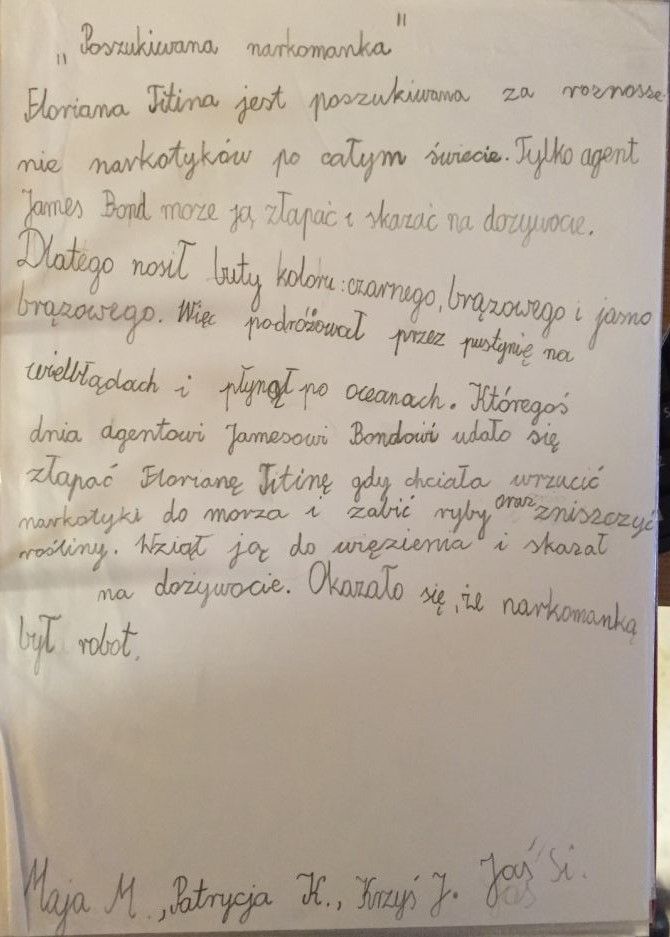 „Poszukiwana narkomanka"
Floriana Titina jest poszukiwana za roznosze-
nie narkotyków po całym świecie. Tylko agent
James Bond może ją złapać i skazać na dożywocie.
Dlatego nosił buty koloru: czarnego, brązowego i jasno
brązowego. Więc podróżował przez pustynię na
wielbłądach i płynął po oceanach. Któregoś
dnia agentowi Jamesowi Bondowi udało się
złapać Florianę Titinę gdy chciała wrzucić
narkotyki do morza i zabić ryby oraz zniszczyć
rośliny. Wziął ją do więzienia i skazał
na dożywocie. Okazało się, że narkomanką
był robot.
Maja M., Patrycja K., Krzyś J. Jaś Si.